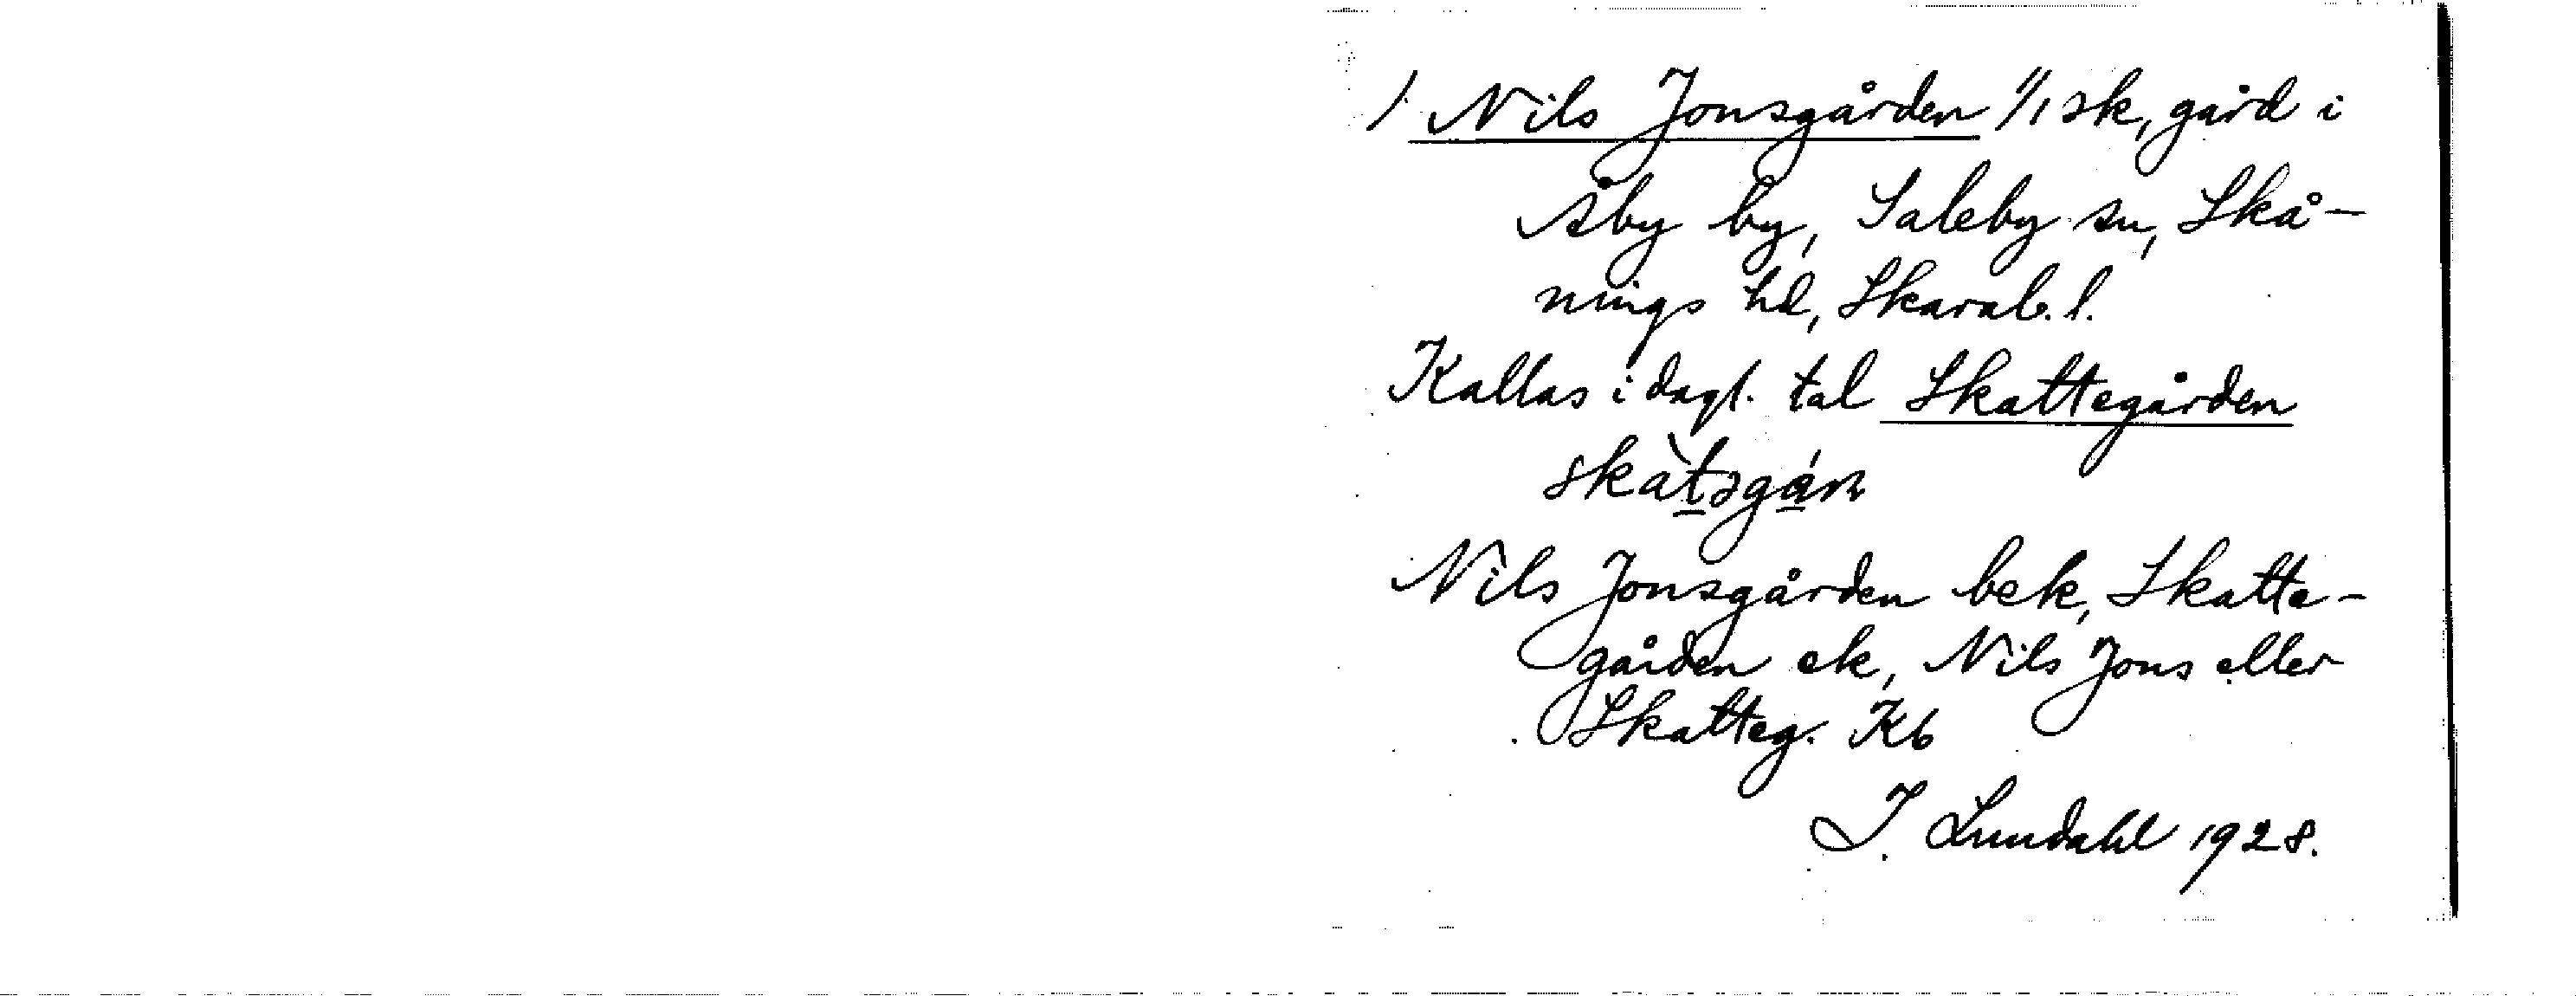 / Nils Jonsgården 1/1 sk, gård i
Åby by, Saleby sn, Skå-
nings hd, Skarab. l.
Kallas i dagl. tal Skattegården
skàtəgán
Nils Jonsgården bek, Skatte-
gården ek, Nils Jons eller
Skatteg. Kb
I. Lundahl 1928.